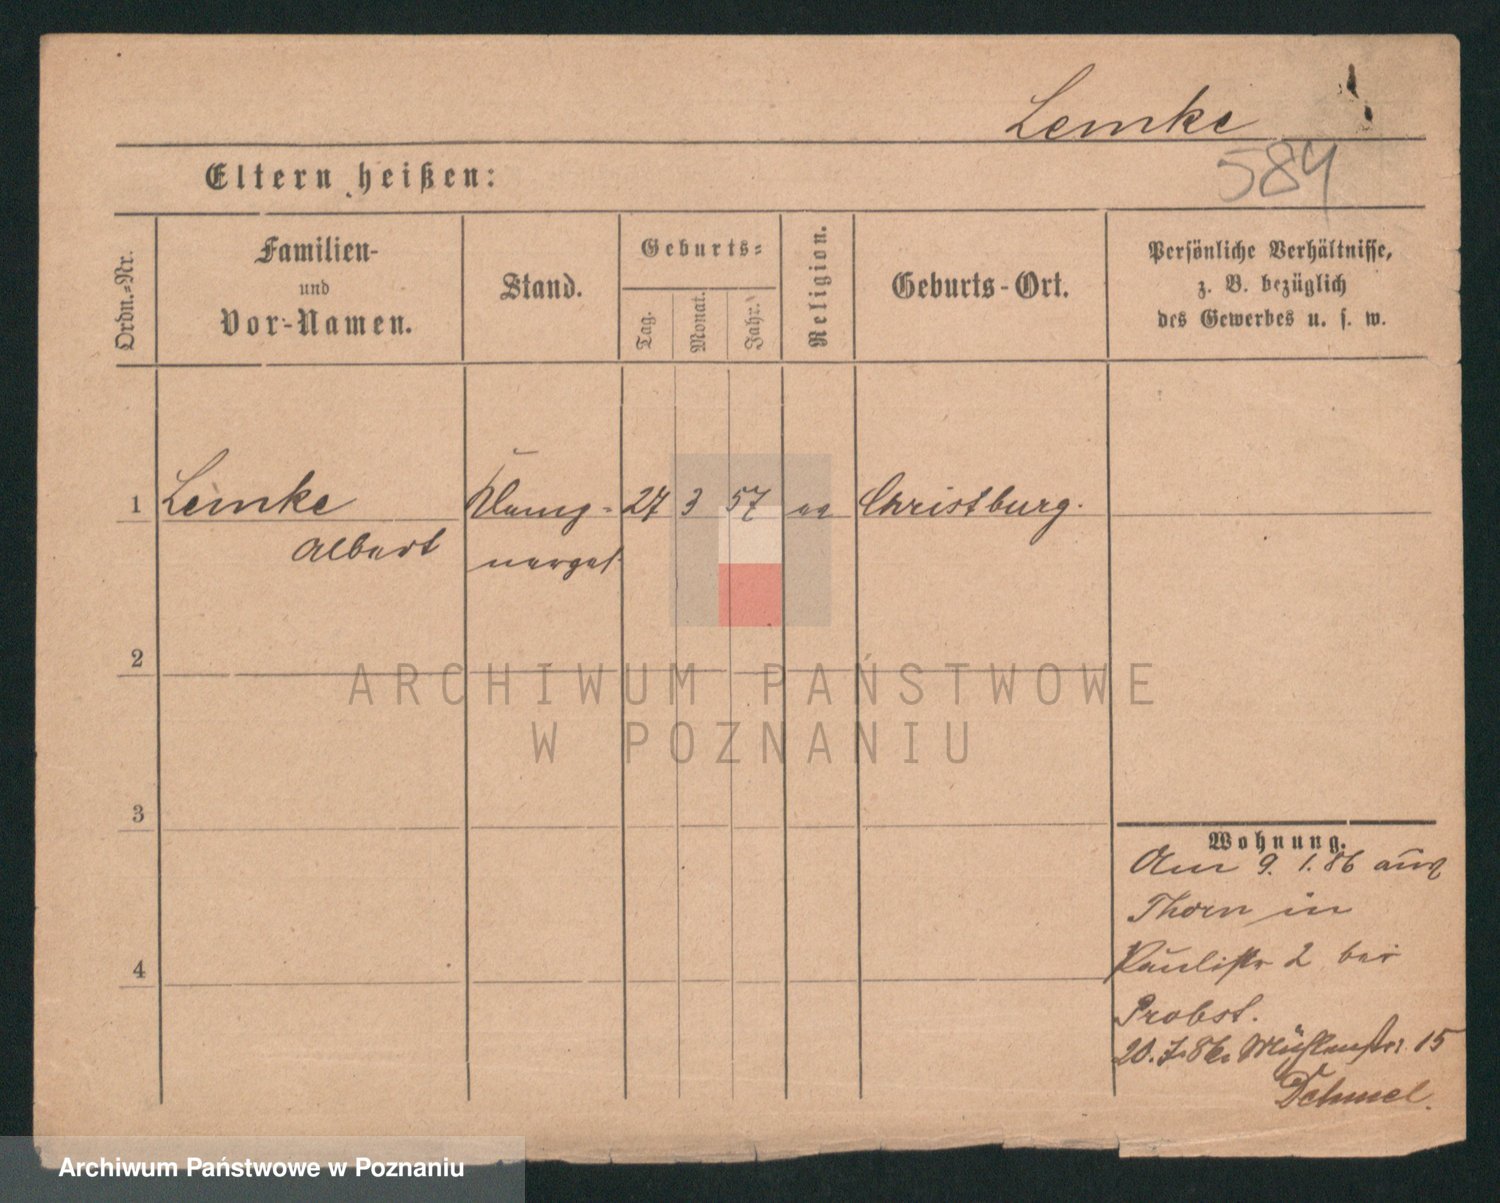 Lemke
584
Eltern heißen:
Ordn.-Nr.
Familien-
und
Vor-Namen.
Stand.
Geburts-
Tag.
Monat.
Jahr.
Religion.
Geburts-Ort.
Persönliche Verhältnisse,
z. B. bezüglich
des Gewerbes u. s. w.
1 Lemke 27 3 57 Christburg.
Albert
2
3
4
Wohnung.
Am 9. 1. 86 aus
Thorn in
Paulistr 2 bei
Probst.
20. 7. 86. Mühlenstr. 15
ARCHIWUM PAŃSTWOWE
W POZNANIU
Archiwum Państwowe w Poznaniu